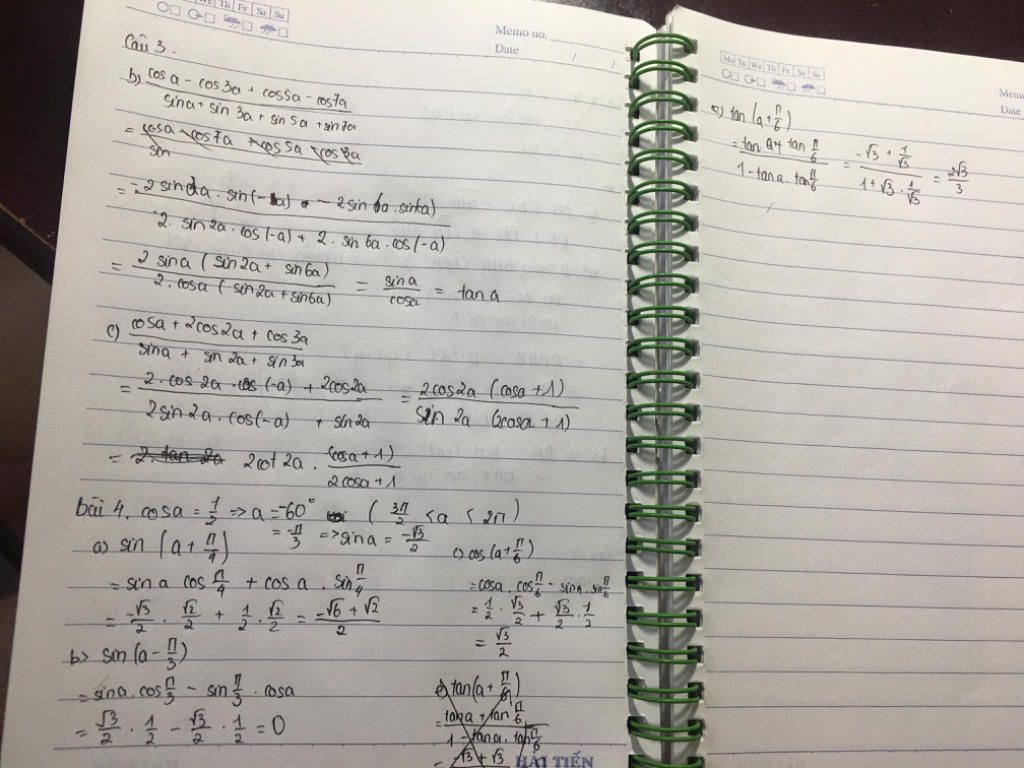 We Th Fr Sa Su
Memo no.
Date / /
Câu 3.
b) (cosa - cos3a + cos5a - cos7a)/(sina + sin 3a + sin 5a + sin7a)
= (cosa - cos7a + cos5a - cos3a)/(sin
= (-2 sin2a . sin(-a) - 2sin 6a . sin(-a))/(2. sin2a. cos(-a) + 2. sin 6a. cos(-a))
= (2 sina (sin2a + sin6a))/(2. cosa (sin2a + sin6a)) = sina/cosa = tan a
c) (cosa + 2cos2a + cos 3a)/(sina + sin 2a + sin 3a)
= (2. cos 2a. cos (-a) + 2cos2a)/(2 sin 2a. cos(-a) + sin 2a) = (2cos2a (cosa + 1))/(sin 2a (2cosa + 1))
= 2. tan 2a 2cot 2a . (cosa + 1)/(2cosa + 1)
bài 4. cosa = 1/2 => a = -60° (3π/2 < a < 2π)
= -π/3 => sina = -√3/2
a) sin (a + π/4)
= sin a cos π/4 + cos a . sin π/4
= -√3/2 . √2/2 + 1/2 . √2/2 = (-√6 + √2)/2
b) sin (a - π/3)
= sina . cos π/3 - sin π/3 . cosa
= √3/2 . 1/2 - √3/2 . 1/2 = 0
c) cos (a + π/6)
= cosa . cos π/6 - sina . sin π/6
= 1/2 . √3/2 + √3/2 . 1/2
= √3/2
e) tan (a + π/6)
= (tana + tan π/6)/(1 - tana . tan π/6)
= -√3 + √3
HẢI TIẾN
Mo Tu We Th Fr Sa Su
Memo
Date
e) tan (a + π/6)
= (tan a + tan π/6)/(1 - tana . tan π/6) = (-√3 + 1/√3)/(1 + √3 . 1/√3) = 2√3/3